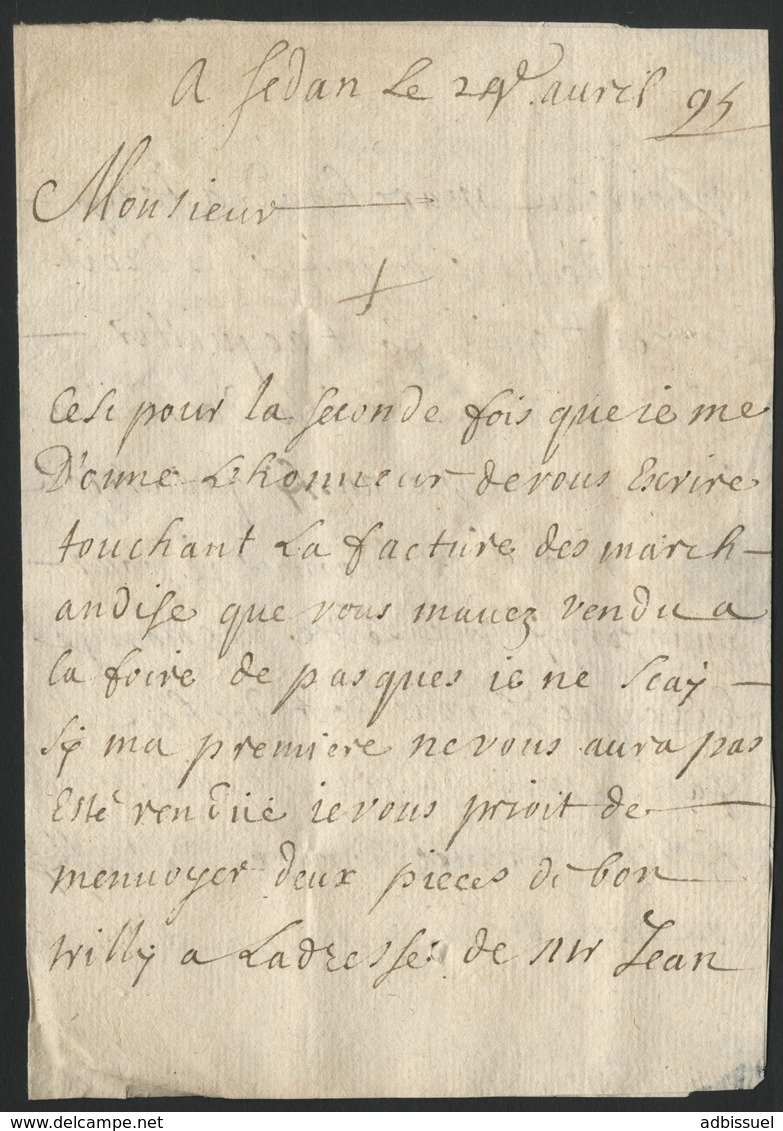 A sedan Le 24e avril 95
Monsieur
Cest pour la seconde fois que ie me
Donne Lhonneur de vous Escrire
touchant La facture des march-
andise que vous mauez vendu a
la foire de pasques ie ne scay
sy ma premiere ne vous aura pas
Esté rendüe ie vous prioit de
menuoyer deux pieces de bon
willy a Ladresse de mr Jean
adbissuel